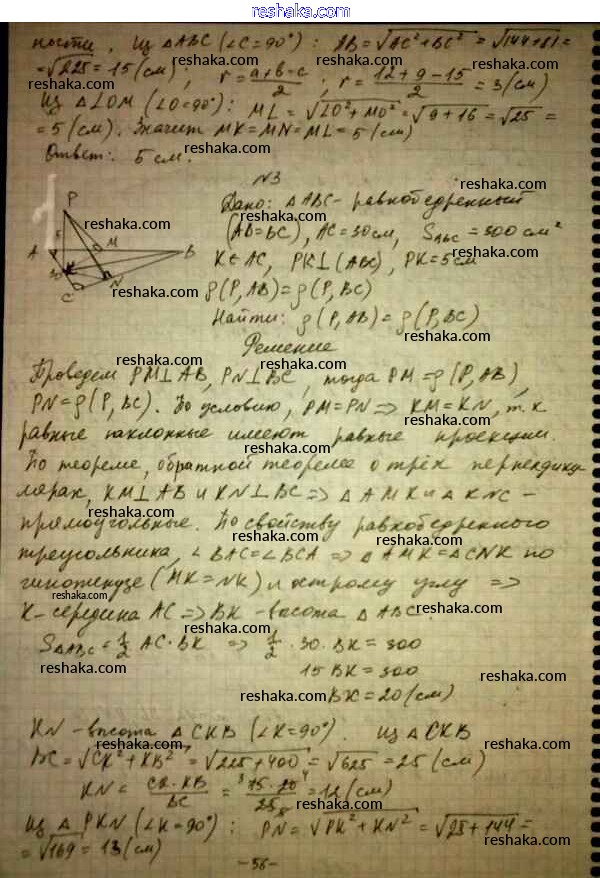 reshaka.com
ности. Из △ABC (∠C=90°): AB=√AC²+BC² = √144+81 =
=√225 = 15 (см); r = a+b-c/2; r = 12+9-15/2 = 3 (см)
reshaka.com
Из △LOM (∠O=90°): ML = √LO²+MO² = √9+16 = √25 =
= 5 (см). Значит MK = MN = ML = 5 (см)
Ответ: 5 см.
reshaka.com
N3
reshaka.com
Дано: △ABC - равнобедренный
(AB=BC), AC = 30 см, S_ABC = 300 см²
K∈AC, PK⊥(ABC), PK = 5 см
ρ(P, AB) = ρ(P, BC)
Найти: ρ(P, AB) = ρ(P, BC)
P
5
A
M
B
K
30
N
C
reshaka.com
Решение
Проведем PM⊥AB, PN⊥BC, тогда PM = ρ(P, AB),
PN = ρ(P, BC). По условию, PM = PN ⇒ KM = KN, т.к
равные наклонные имеют равные проекции.
reshaka.com
По теореме, обратной теореме о трёх перпендику
лярах, KM⊥AB и KN⊥BC ⇒ △AMK и △KNC -
прямоугольные. По свойству равнобедренного
треугольника, ∠BAC = ∠BCA ⇒ △AMK = △CNK по
гипотенузе (MK = NK) и острому углу ⇒
K - середина AC ⇒ BK - высота △ABC.
reshaka.com
S△ABC = 1/2 AC·BK ⇒ 1/2 · 30 · BK = 300
15 BK = 300
BK = 20 (см)
reshaka.com
KN - высота △CKB (∠K=90°). Из △CKB
BC = √CK²+KB² = √225+400 = √625 = 25 (см)
KN = CK·KB/BC = 15·20/25 = 12 (см)
reshaka.com
Из △PKN (∠K=90°): PN = √PK²+KN² = √25+144 =
= √169 = 13 (см)
reshaka.com
-56-